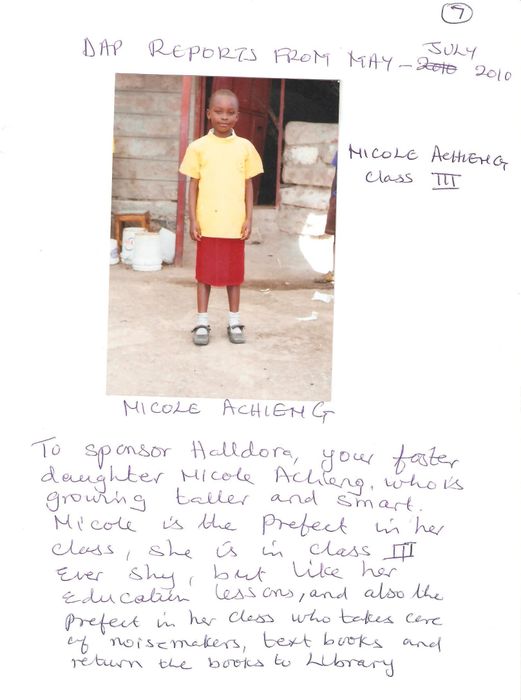 7
DAP REPORTS FROM MAY – 2010 JULY 2010
NICOLE ACHIENG
Class III
NICOLE ACHIENG
To sponsor Halldora, your foster
daughter Nicole Achieng. who is
growing taller and smart.
Nicole is the Prefect in her
class, she is in class III
Ever shy, but like her
Education lessons, and also the
prefect in her class who takes care
of noisemakers, text books and
return the books to Library